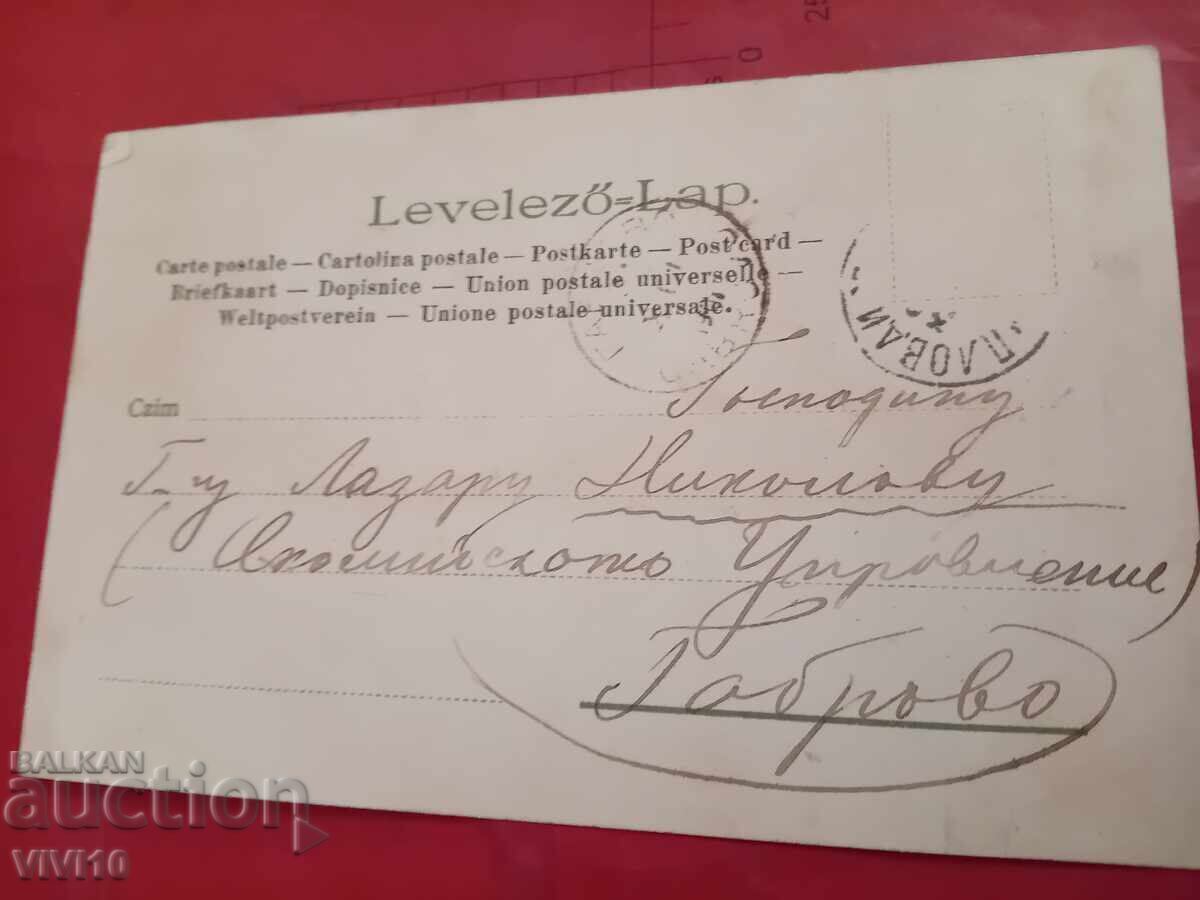 25
0
Levelező=Lap.
Carte postale — Cartolina postale — Postkarte — Post card —
Briefkaart — Dopisnice — Union postale universelle —
Weltpostverein — Unione postale universale.
ПЛОВДИ
Czim
Господину
Г-ну Лазару Николову
Управление)
Габрово
BALKAN
auction
VIVI10